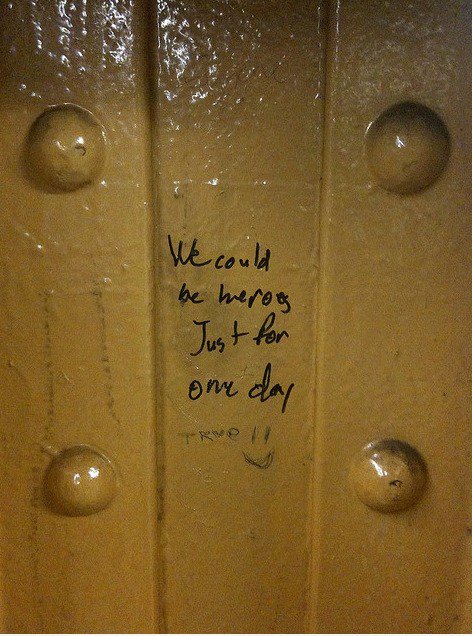 We could
be heroes
Just for
one day
TRUE!!